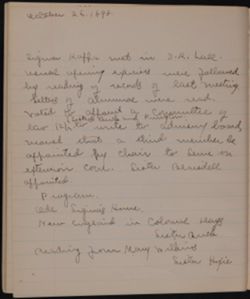 October 26, 1898.
Sigma Kappa met in D.K. Hall.
usual opening exercises were followed
by reading of records of last meeting
letters of alumnae were read.
Voted to appoint a committee of
two to write to advisory board
moved that a third member be
appointed by chair to serve on
exterior com. Sister
appointed.
Program.
Ode Sigma's Name.
New England in Colonial Days
Sister
Reading from Mary Wilkins
Sister